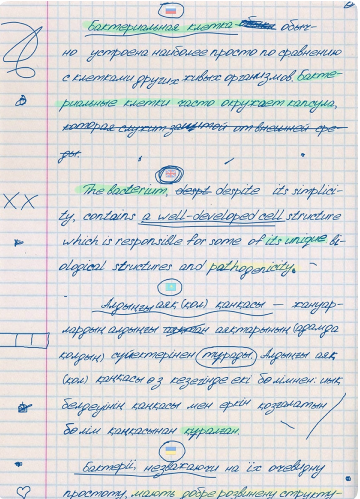 Бактериальная клетка обыч-
но устроена наиболее просто по сравнению
с клетками других живых организмов. Бакте-
риальные клетки часто окружает капсула,
которая служит защитой от внешней сре-
ды.
The bacterium, despt despite its simplici-
ty, contains a well-developed cell structure
which is responsible for some of its unique bi-
ological structures and pathogenicity.
Алдыңғы аяқ (қол) қаңқасы – жануар-
лардың алдыңғы аяқтарының (адамда
қолдың) сүйектерінен тұрады. Алдыңғы аяқ
(қол) қаңқасы өз кезегінде екі бөлімнен: иық
белдеуінің қаңқасы мен еркін қозғалатын
бөлім қаңқасынан құралған.
Бактерії, незважаючи на їх очевидну
простоту, мають добре розвинену структу-